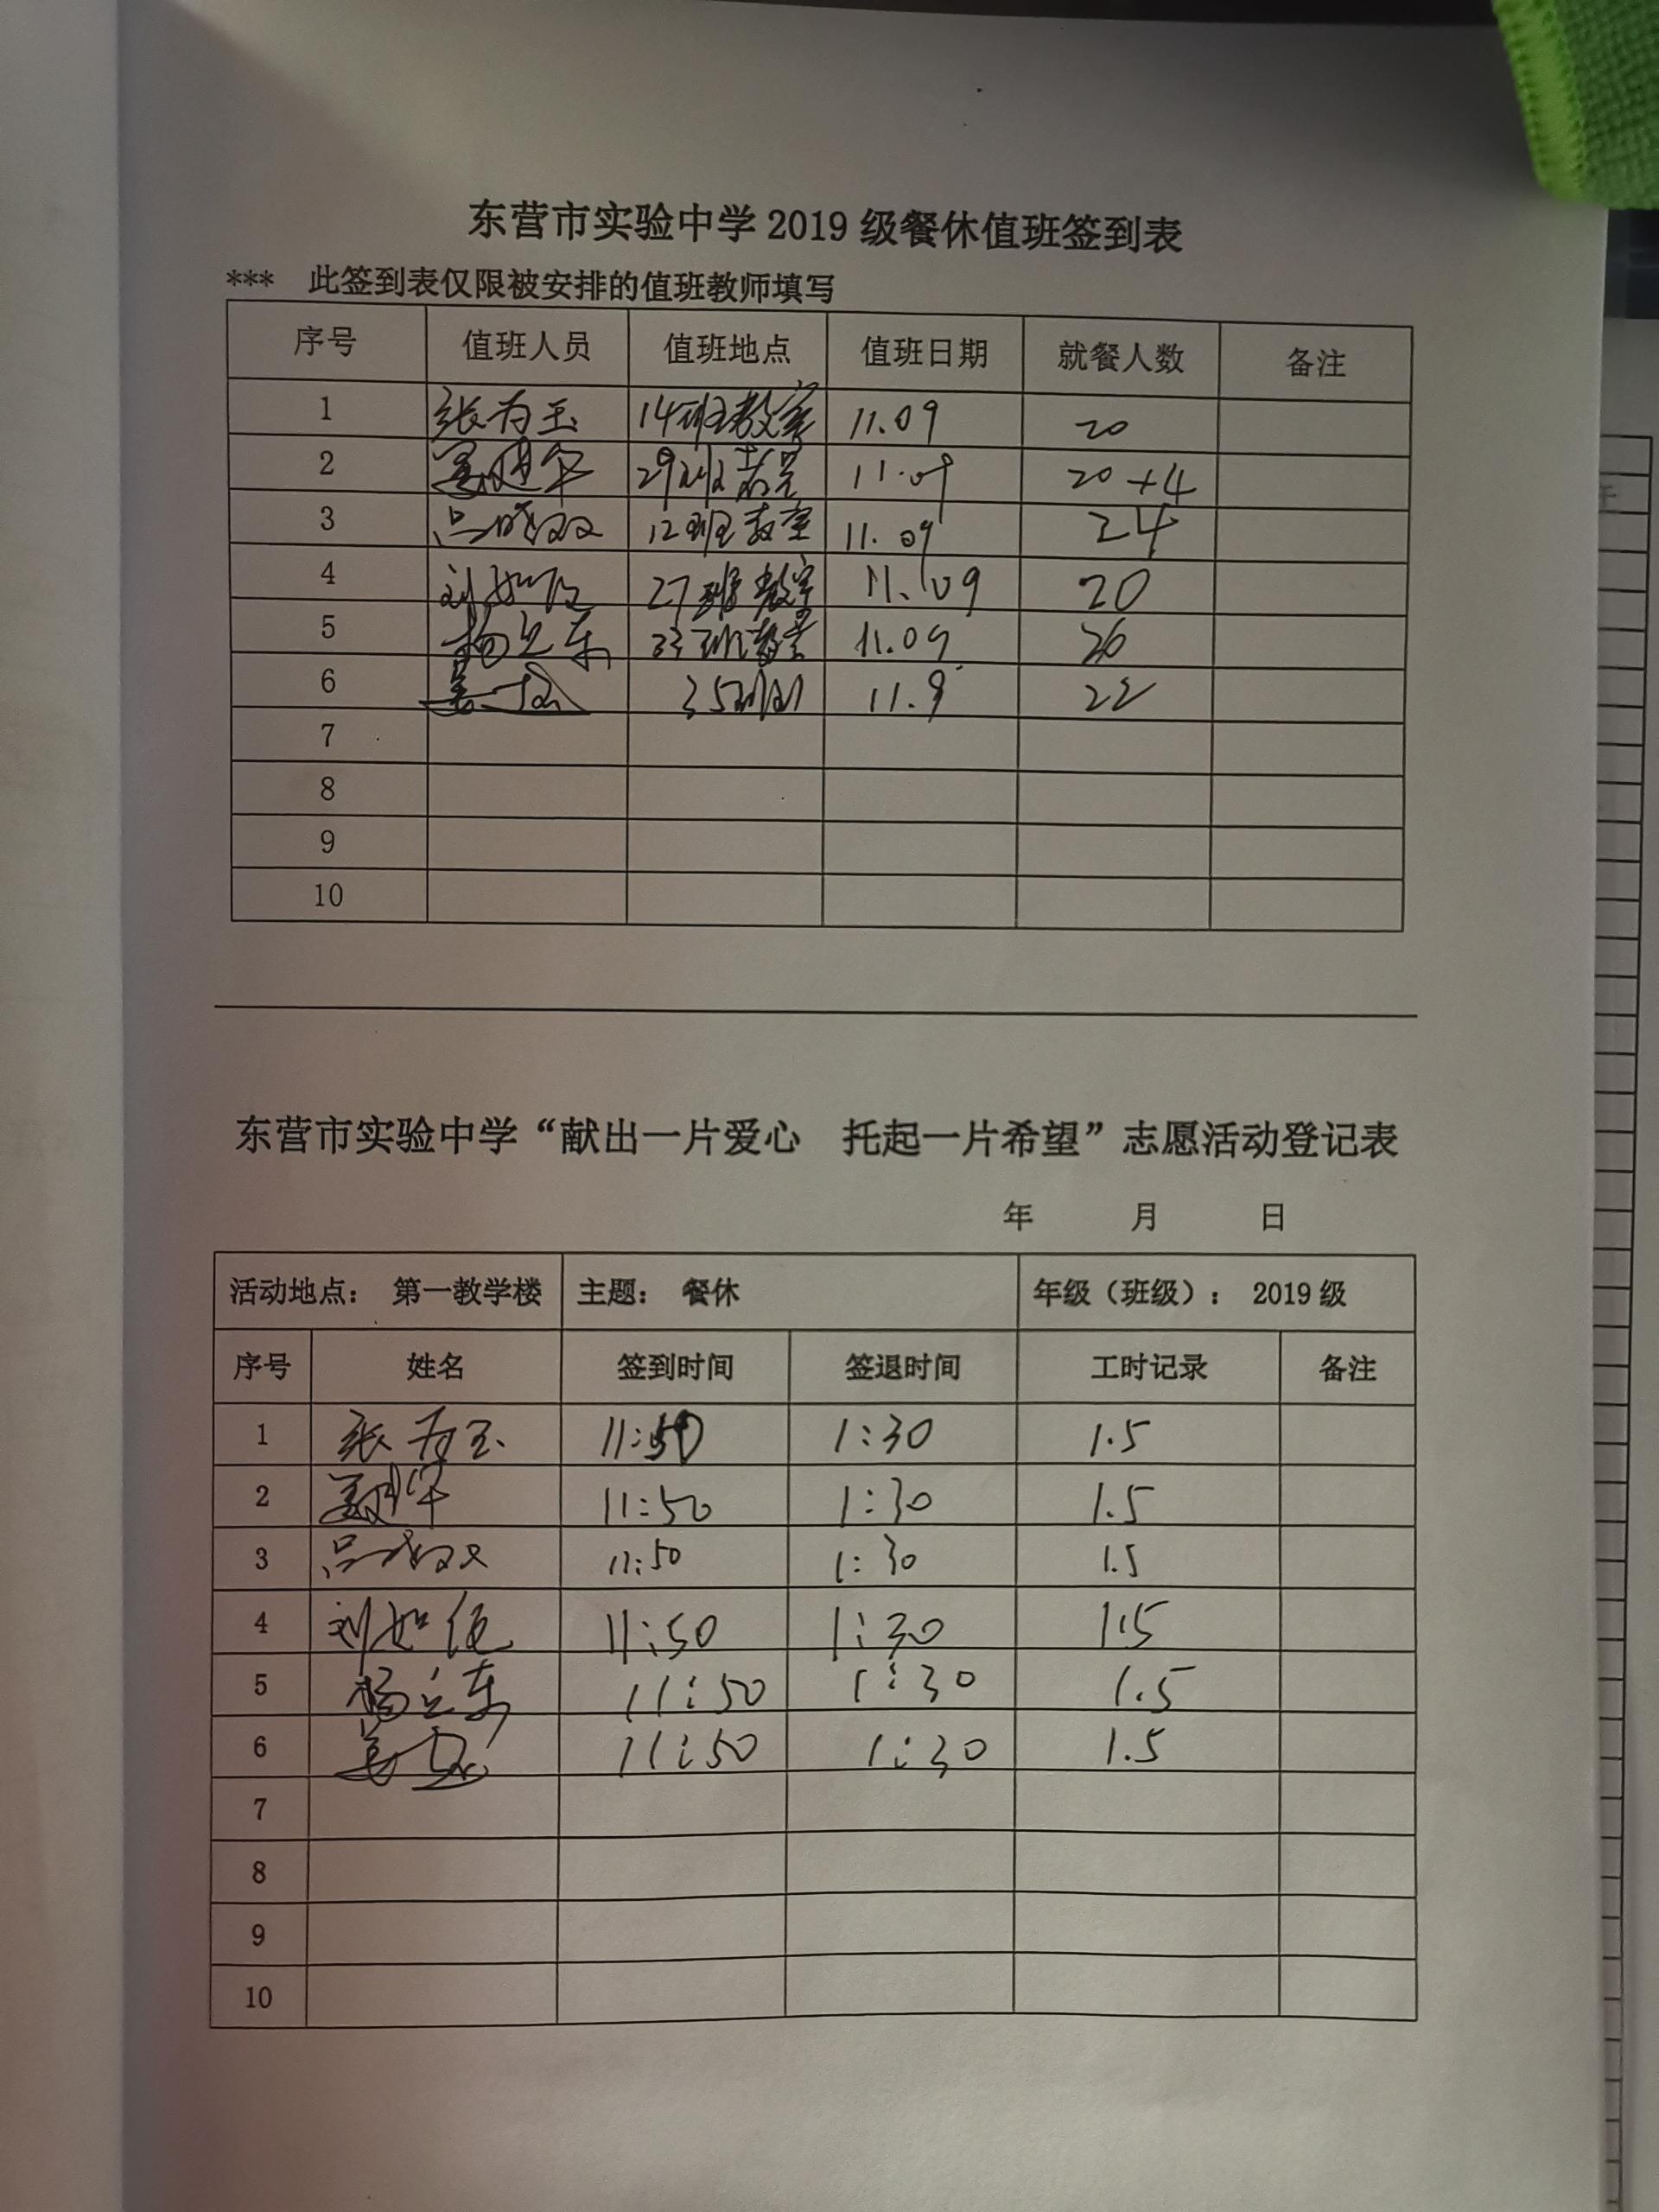 东营市实验中学 2019 级餐休值班签到表
*** 此签到表仅限被安排的值班教师填写
序号 值班人员 值班地点 值班日期 就餐人数 备注
1 张为玉 14班教室 11.09 20
2 29班教室 11.09 20+4
3 吕晓双 12班教室 11.09 24
4 刘如 27班教室 11.09 20
5 杨立东 33班教室 11.09 26
6 姜 35班 11.9 22
7
8
9
10
东营市实验中学“献出一片爱心 托起一片希望”志愿活动登记表
年 月 日
活动地点： 第一教学楼 主题： 餐休 年级（班级）： 2019 级
序号 姓名 签到时间 签退时间 工时记录 备注
1 张为玉 11:50 1:30 1.5
2 11:50 1:30 1.5
3 吕晓双 11:50 1:30 1.5
4 刘如 11:50 1:30 1.5
5 杨立东 11:50 1:30 1.5
6 姜 11:50 1:30 1.5
7
8
9
10